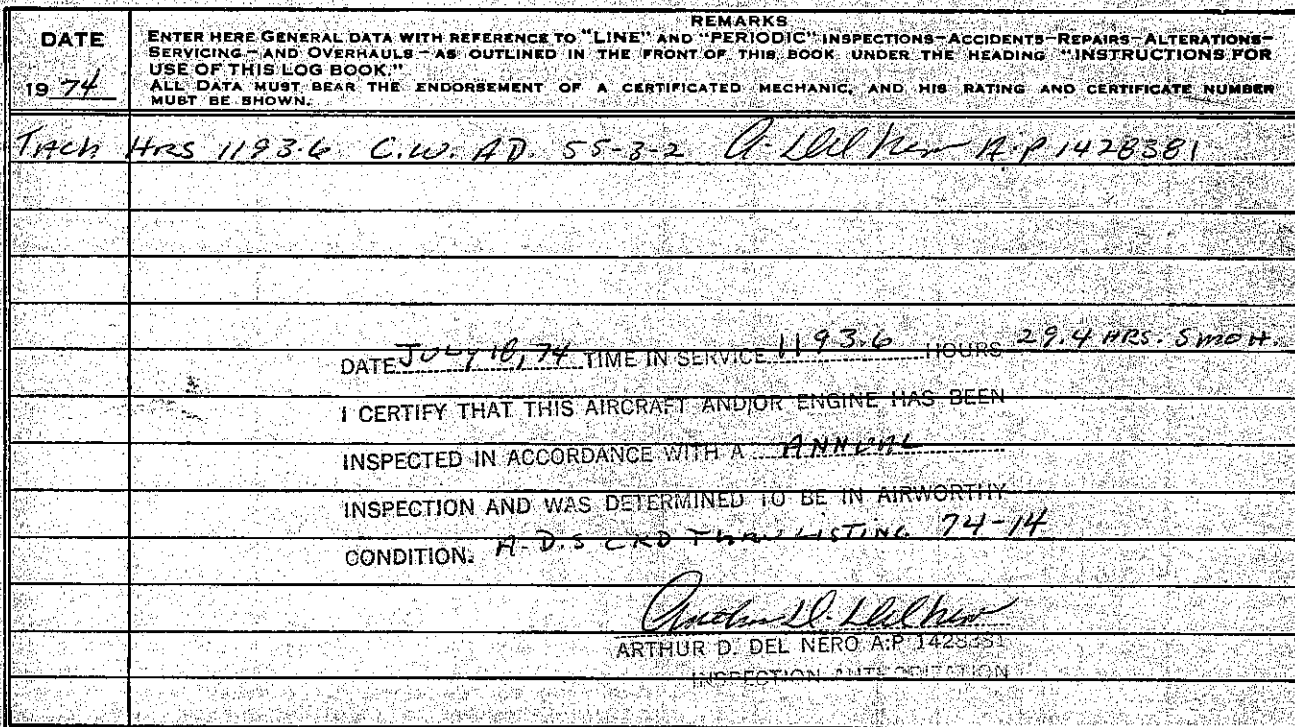 REMARKS
DATE
ENTER HERE GENERAL DATA WITH REFERENCE TO "LINE" AND "PERIODIC" INSPECTIONS-ACCIDENTS-REPAIRS-ALTERATIONS-
SERVICING-AND OVERHAULS-AS OUTLINED IN THE FRONT OF THIS BOOK UNDER THE HEADING "INSTRUCTIONS FOR
USE OF THIS LOG BOOK."
1974
ALL DATA MUST BEAR THE ENDORSEMENT OF A CERTIFICATED MECHANIC, AND HIS RATING AND CERTIFICATE NUMBER
MUST BE SHOWN.
TACH HRS 1193.6 C.W. AD. 55-3-2 A. Del Nero A.P 1428381
DATE JULY 10, 74 TIME IN SERVICE 1193.6 HOURS 29.4 HRS. SMOH.
I CERTIFY THAT THIS AIRCRAFT AND/OR ENGINE HAS BEEN
INSPECTED IN ACCORDANCE WITH A ANNUAL
INSPECTION AND WAS DETERMINED TO BE IN AIRWORTHY
CONDITION. A.D.S CKD THRU LISTING 74-14
Arthur D. Del Nero
ARTHUR D. DEL NERO A.P 1428381
INSPECTION AUTHORIZATION